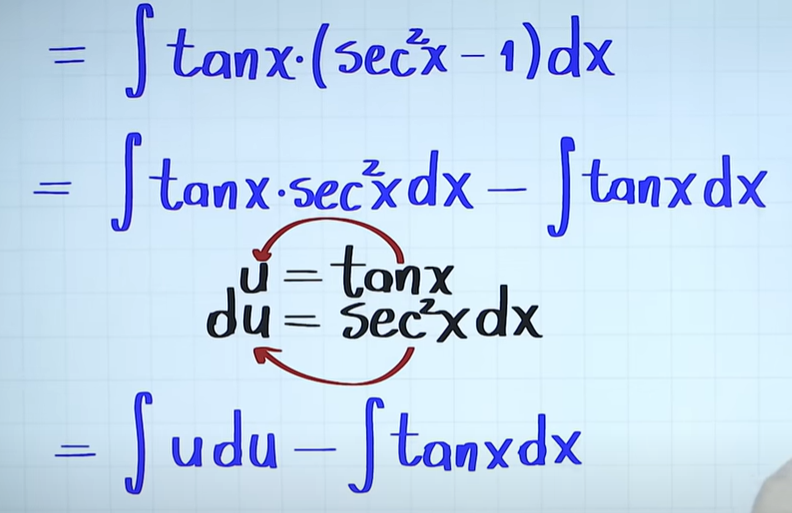 = ∫ tanx·(sec²x − 1)dx
= ∫ tanx·sec²xdx − ∫ tanxdx
u = tanx
du = sec²xdx
= ∫ udu − ∫ tanxdx